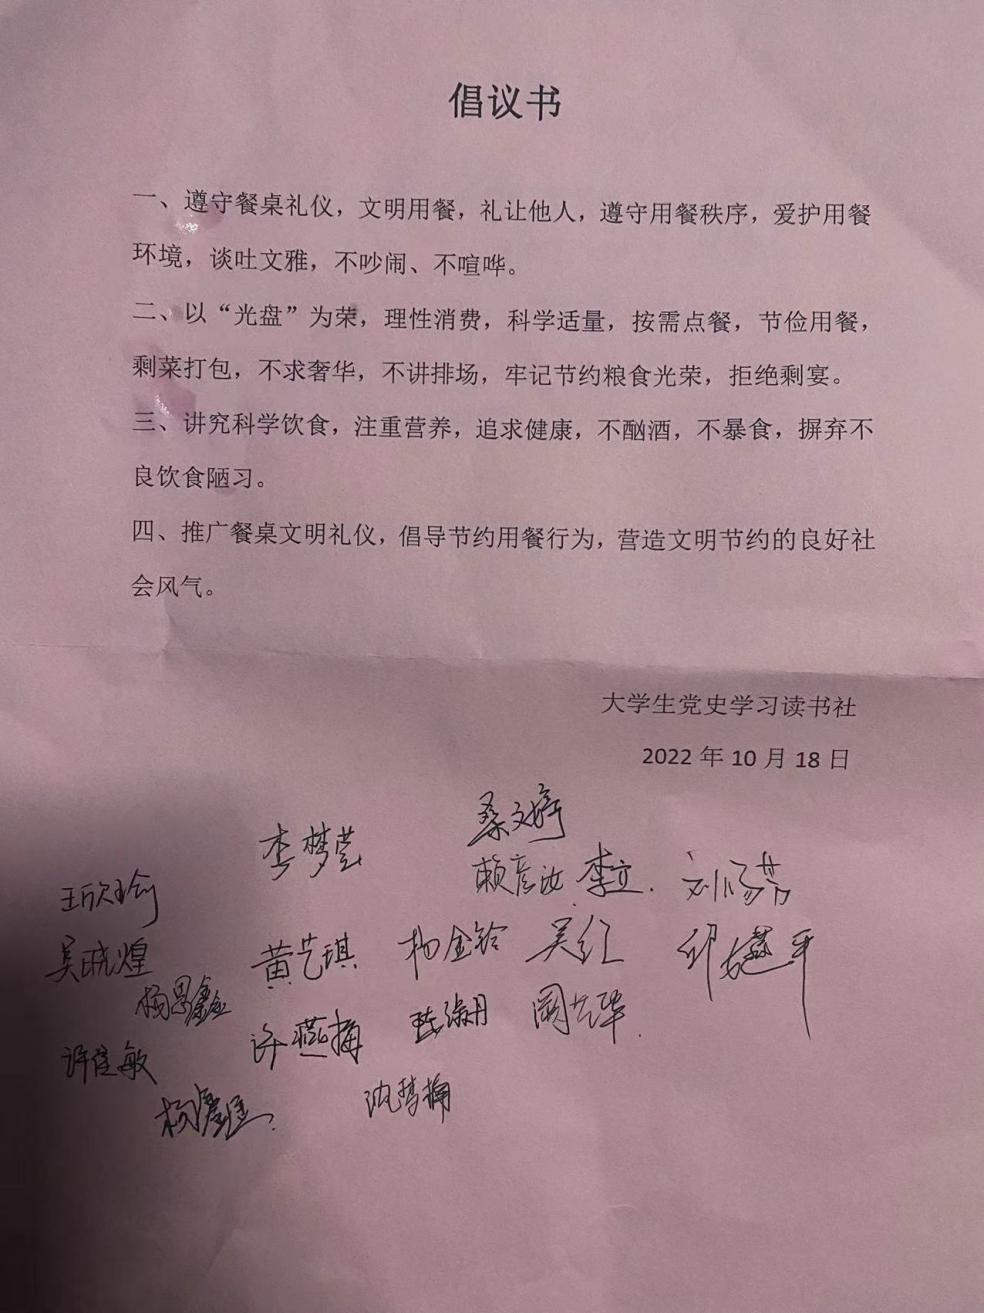 倡议书
一、遵守餐桌礼仪，文明用餐，礼让他人，遵守用餐秩序，爱护用餐
环境，谈吐文雅，不吵闹、不喧哗。
二、以“光盘”为荣，理性消费，科学适量，按需点餐，节俭用餐，
剩菜打包，不求奢华，不讲排场，牢记节约粮食光荣，拒绝剩宴。
三、讲究科学饮食，注重营养，追求健康，不酗酒，不暴食，摒弃不
良饮食陋习。
四、推广餐桌文明礼仪，倡导节约用餐行为，营造文明节约的良好社
会风气。
大学生党史学习读书社
2022 年 10 月 18 日
桑文婷
李梦莹
赖彦汝 李立.
王欣瑜
黄艺琪 杨金铃 吴红
吴晓煌
杨思鑫
许燕梅
许佳敏